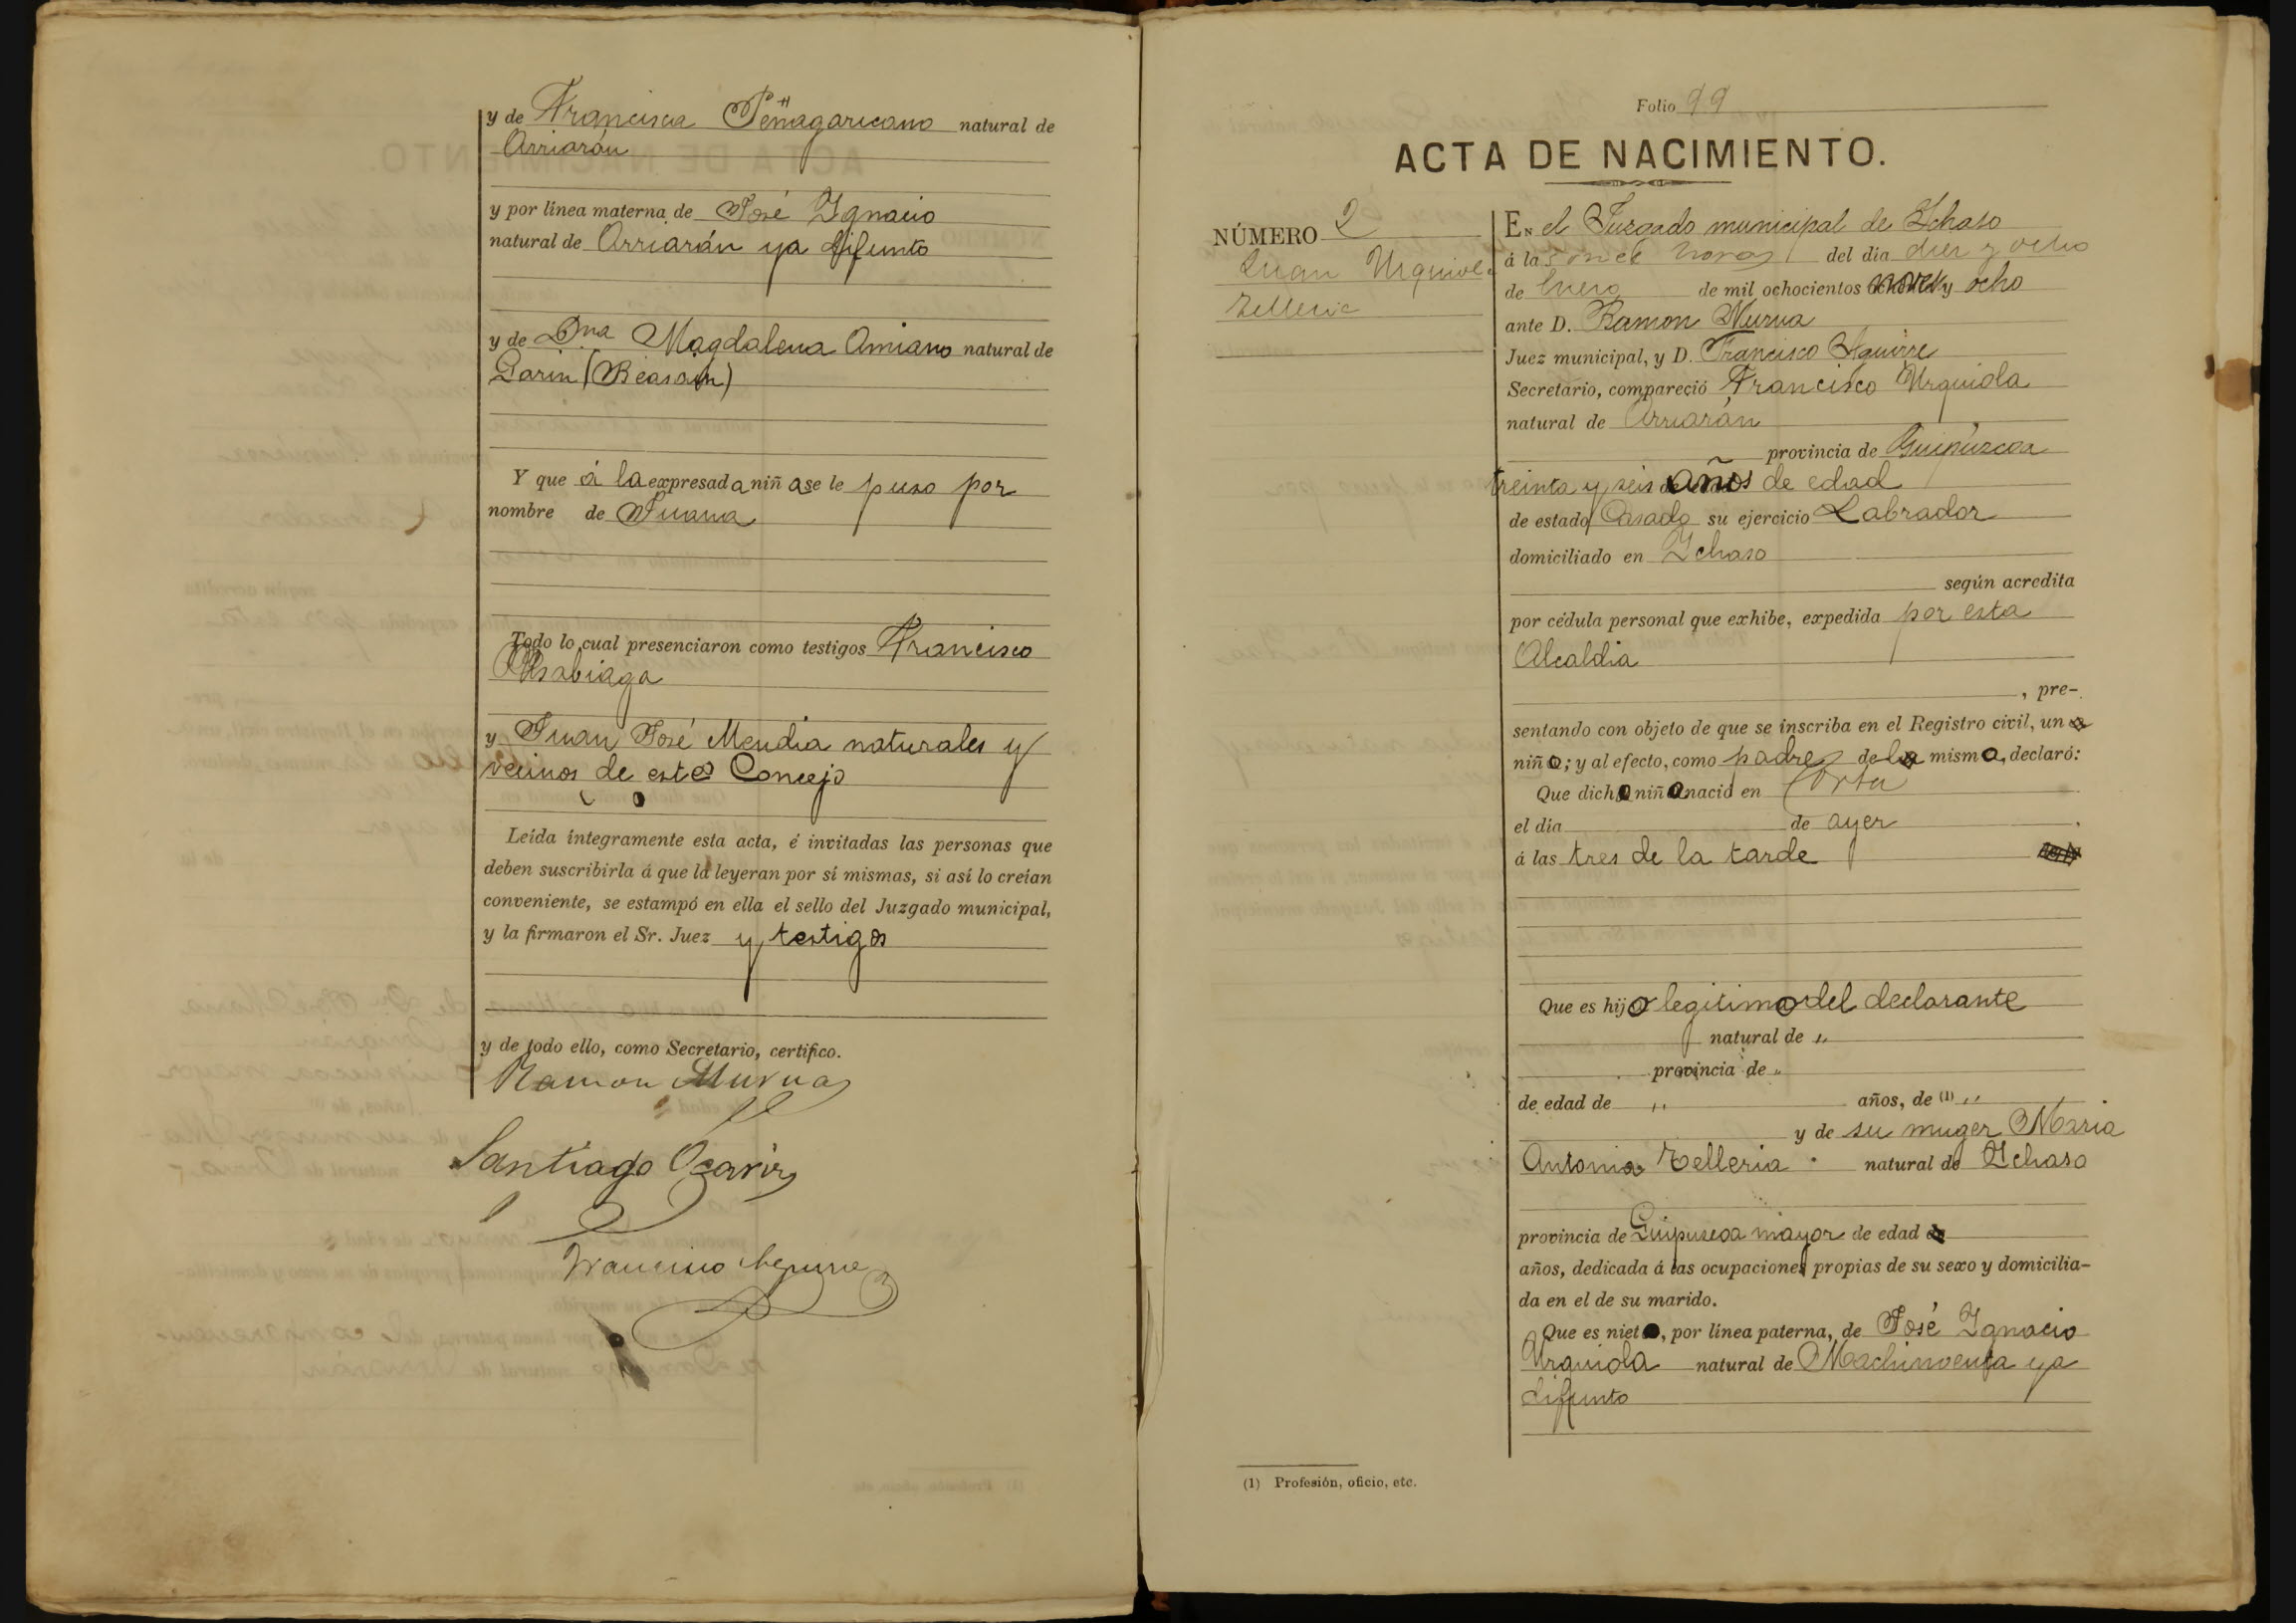 y de Francisca Peñagaricano natural de
Arriarán
y por línea materna de José Ygnacio
natural de Arriarán ya difunto
y de Dna Magdalena Amiano natural de
Garin (Beasain)
Y que á la expresada niña se le puso por
nombre de Juana
Todo lo cual presenciaron como testigos Francisco
Usabiaga
y Juan José Mendia naturales y
vecinos de este Concejo
Leída íntegramente esta acta, é invitadas las personas que
deben suscribirla á que la leyeran por sí mismas, si así lo creían
conveniente, se estampó en ella el sello del Juzgado municipal,
y la firmaron el Sr. Juez y testigos
y de todo ello, como Secretario, certifico.
Ramon Murua
Santiago
Francisco Aguirre
Folio 99
ACTA DE NACIMIENTO.
NÚMERO 2
Juan Urquiola
Telleria
En el Juzgado municipal de Ychaso
á las once horas del día diez y ocho
de Enero de mil ochocientos noventa y ocho
ante D. Ramon Murua
Juez municipal, y D. Francisco Aguirre
Secretario, compareció Francisco Urquiola
natural de Arriarán
provincia de Guipúzcoa
treinta y seis años de edad
de estado Casado su ejercicio Labrador
domiciliado en Ychaso
según acredita
por cédula personal que exhibe, expedida por esta
Alcaldia
, pre-
sentando con objeto de que se inscriba en el Registro civil, un
niño; y al efecto, como padre del mismo, declaró:
Que dicho niño nació en
el día de ayer
á las tres de la tarde
Que es hijo legitimo del declarante
natural de "
provincia de "
de edad de " años, de (1) "
y de su muger Maria
Antonia Telleria natural de Ychaso
provincia de Guipuzcoa mayor de edad
años, dedicada á las ocupaciones propias de su sexo y domicilia-
da en el de su marido.
Que es nieto, por línea paterna, de José Ygnacio
Urquiola natural de Machinventa ya
difunto
(1) Profesión, oficio, etc.